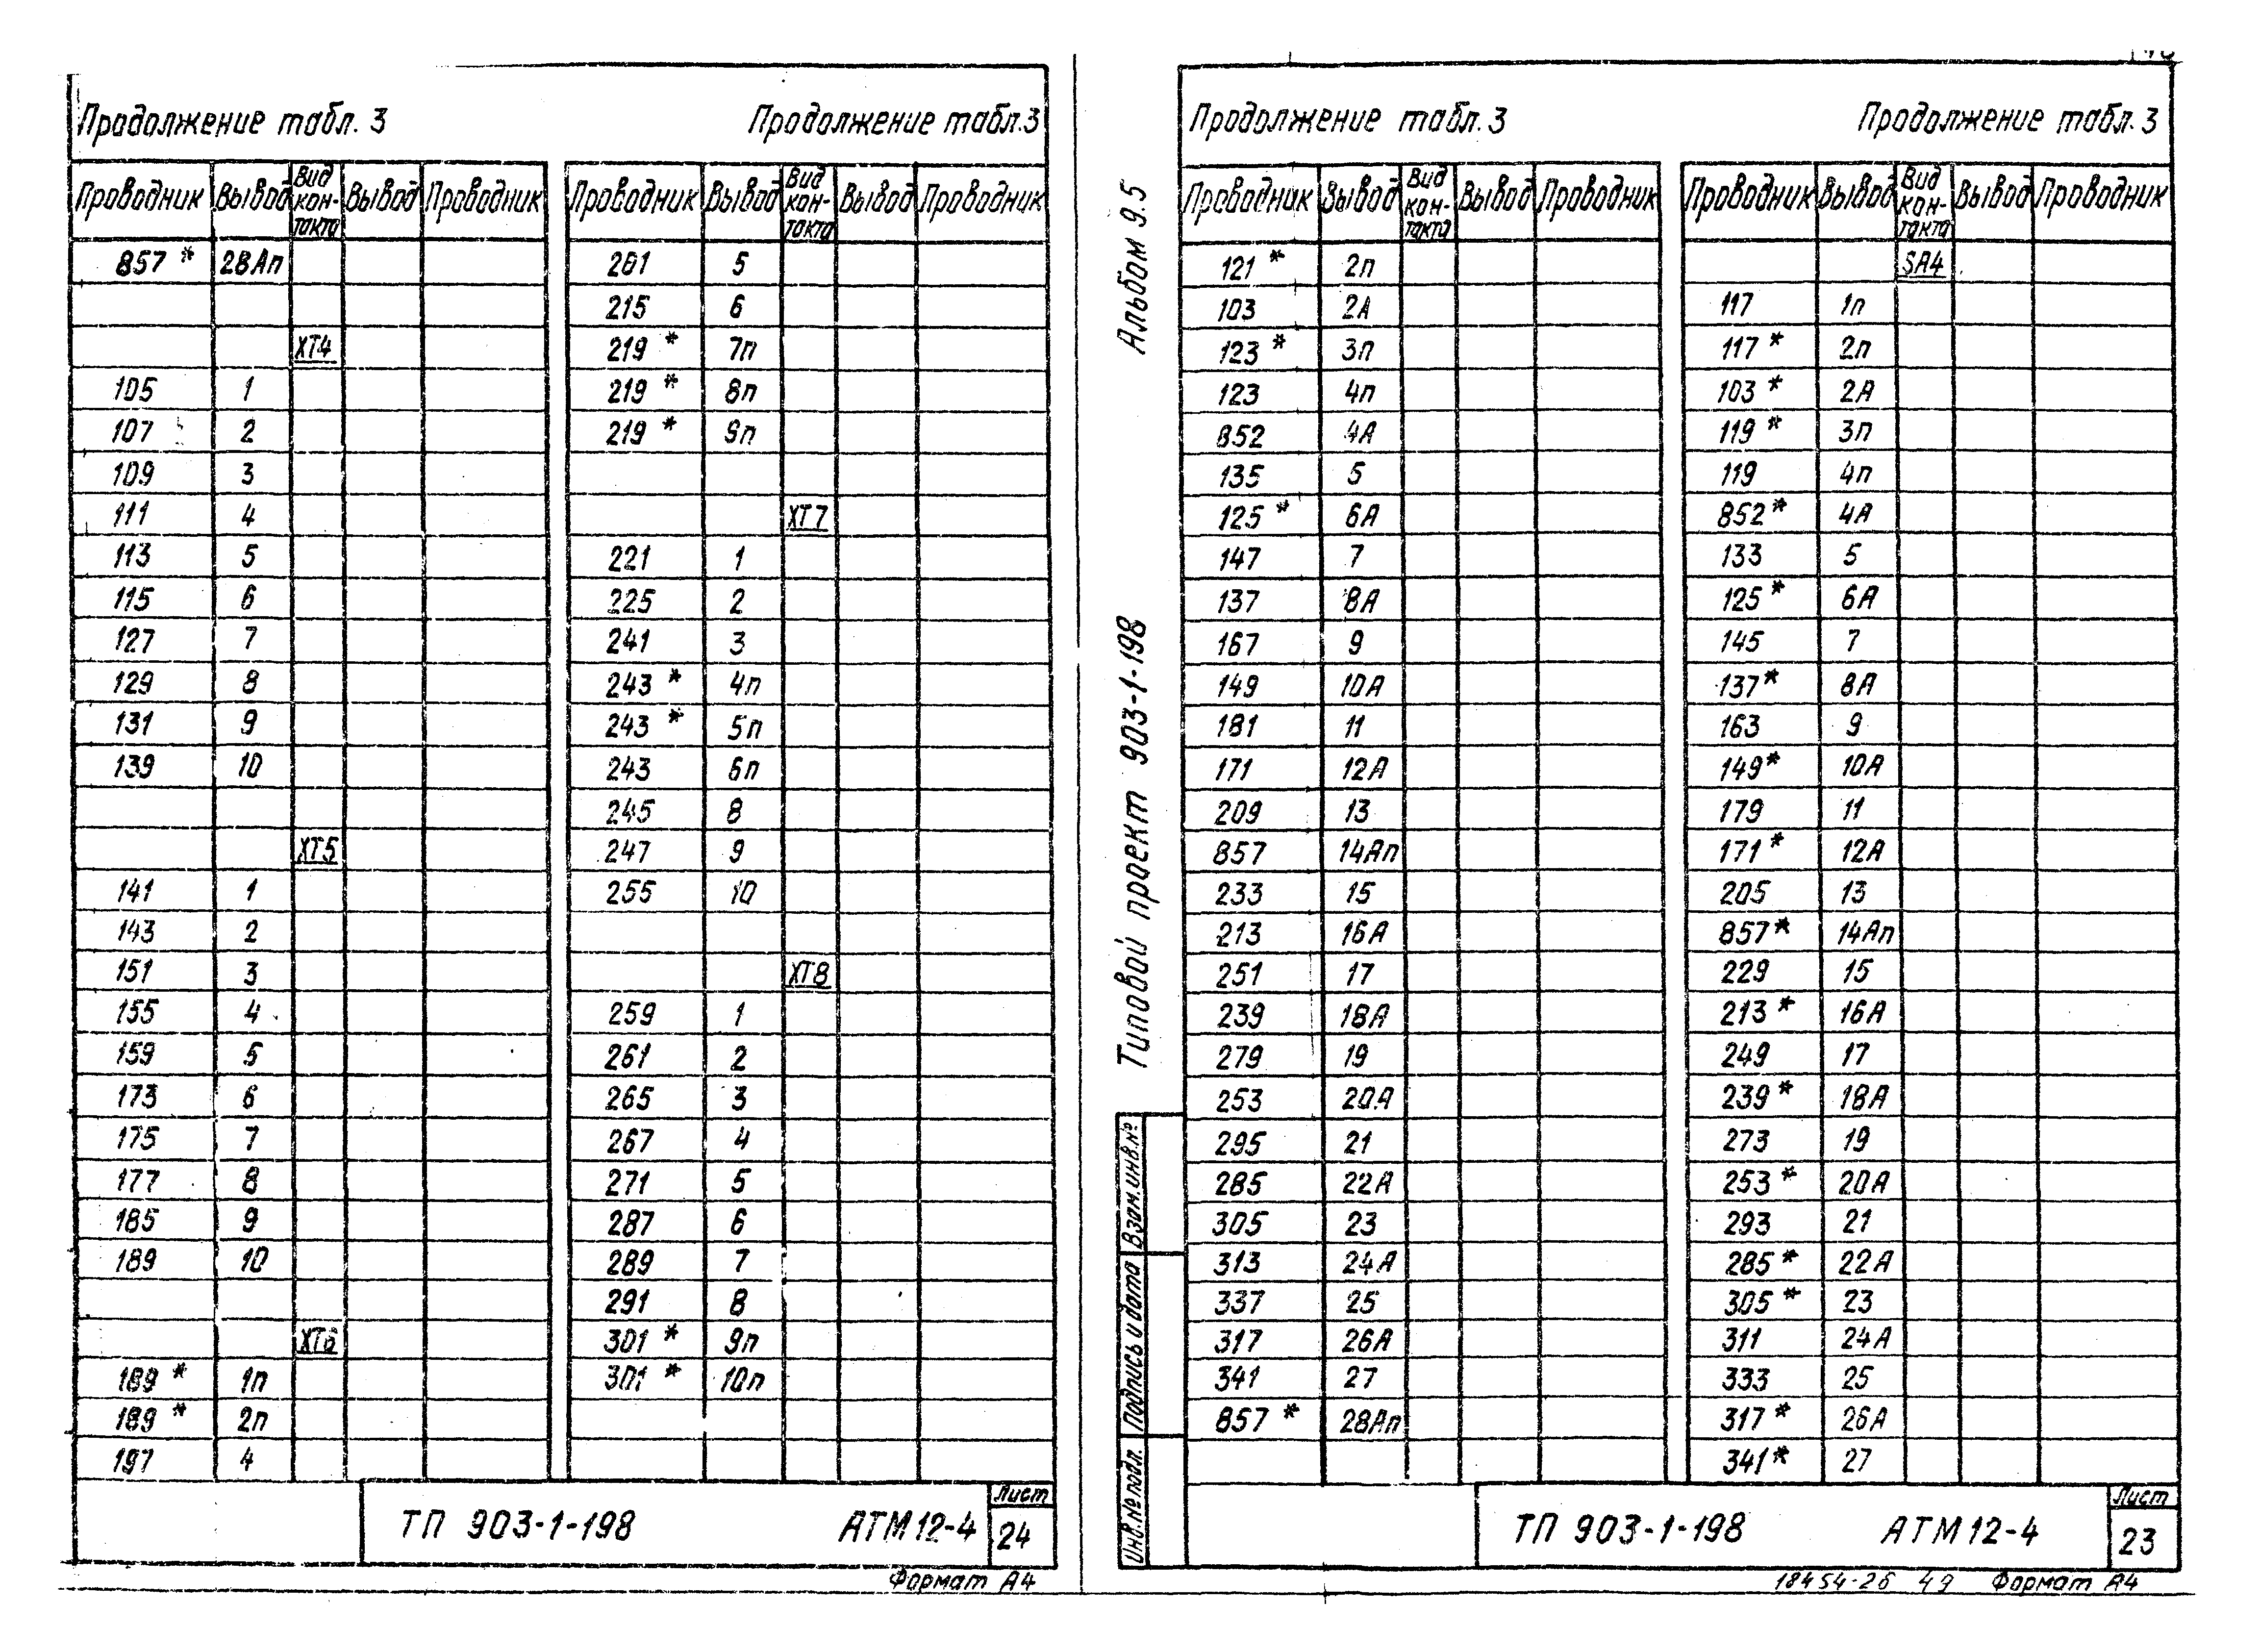 Продолжение табл. 3
Проводник Вывод Вид кон- такта Вывод Проводник
857 * 28Ап
ХТ4
105 1
107 2
109 3
111 4
113 5
115 6
127 7
129 8
131 9
139 10
ХТ5
141 1
143 2
151 3
155 4
159 5
173 6
175 7
177 8
185 9
189 10
ХТ6
189 * 1п
189 * 2п
197 4
Продолжение табл.3
Проводник Вывод Вид кон- такта Вывод Проводник
201 5
215 6
219 * 7п
219 * 8п
219 * 9п
ХТ7
221 1
225 2
241 3
243 * 4п
243 * 5п
243 6п
245 8
247 9
255 10
ХТ8
259 1
261 2
265 3
267 4
271 5
287 6
289 7
291 8
301 * 9п
301 * 10п
ТП 903-1-198 АТМ12-4 Лист 24
Формат А4
Альбом 9.5
Типовой проект 903-1-198
Взам.инв.№
Подпись и дата
Инв.№ подл.
Продолжение табл. 3
Проводник Вывод Вид кон- такта Вывод Проводник
121 * 2п
103 2А
123 * 3п
123 4п
852 4А
135 5
125 * 6А
147 7
137 8А
167 9
149 10А
181 11
171 12А
209 13
857 14Ап
233 15
213 16А
251 17
239 18А
279 19
253 20А
295 21
285 22А
305 23
313 24А
337 25
317 26А
341 27
857 * 28Ап
Продолжение табл. 3
Проводник Вывод Вид кон- такта Вывод Проводник
SA4
117 1п
117 * 2п
103 * 2А
119 * 3п
119 4п
852 * 4А
133 5
125 * 6А
145 7
137 * 8А
163 9
149 * 10А
179 11
171 * 12А
205 13
857 * 14Ап
229 15
213 * 16А
249 17
239 * 18А
273 19
253 * 20А
293 21
285 * 22А
305 * 23
311 24А
333 25
317 * 26А
341 * 27
ТП 903-1-198 АТМ12-4 Лист 23
18454-26 49 Формат А4